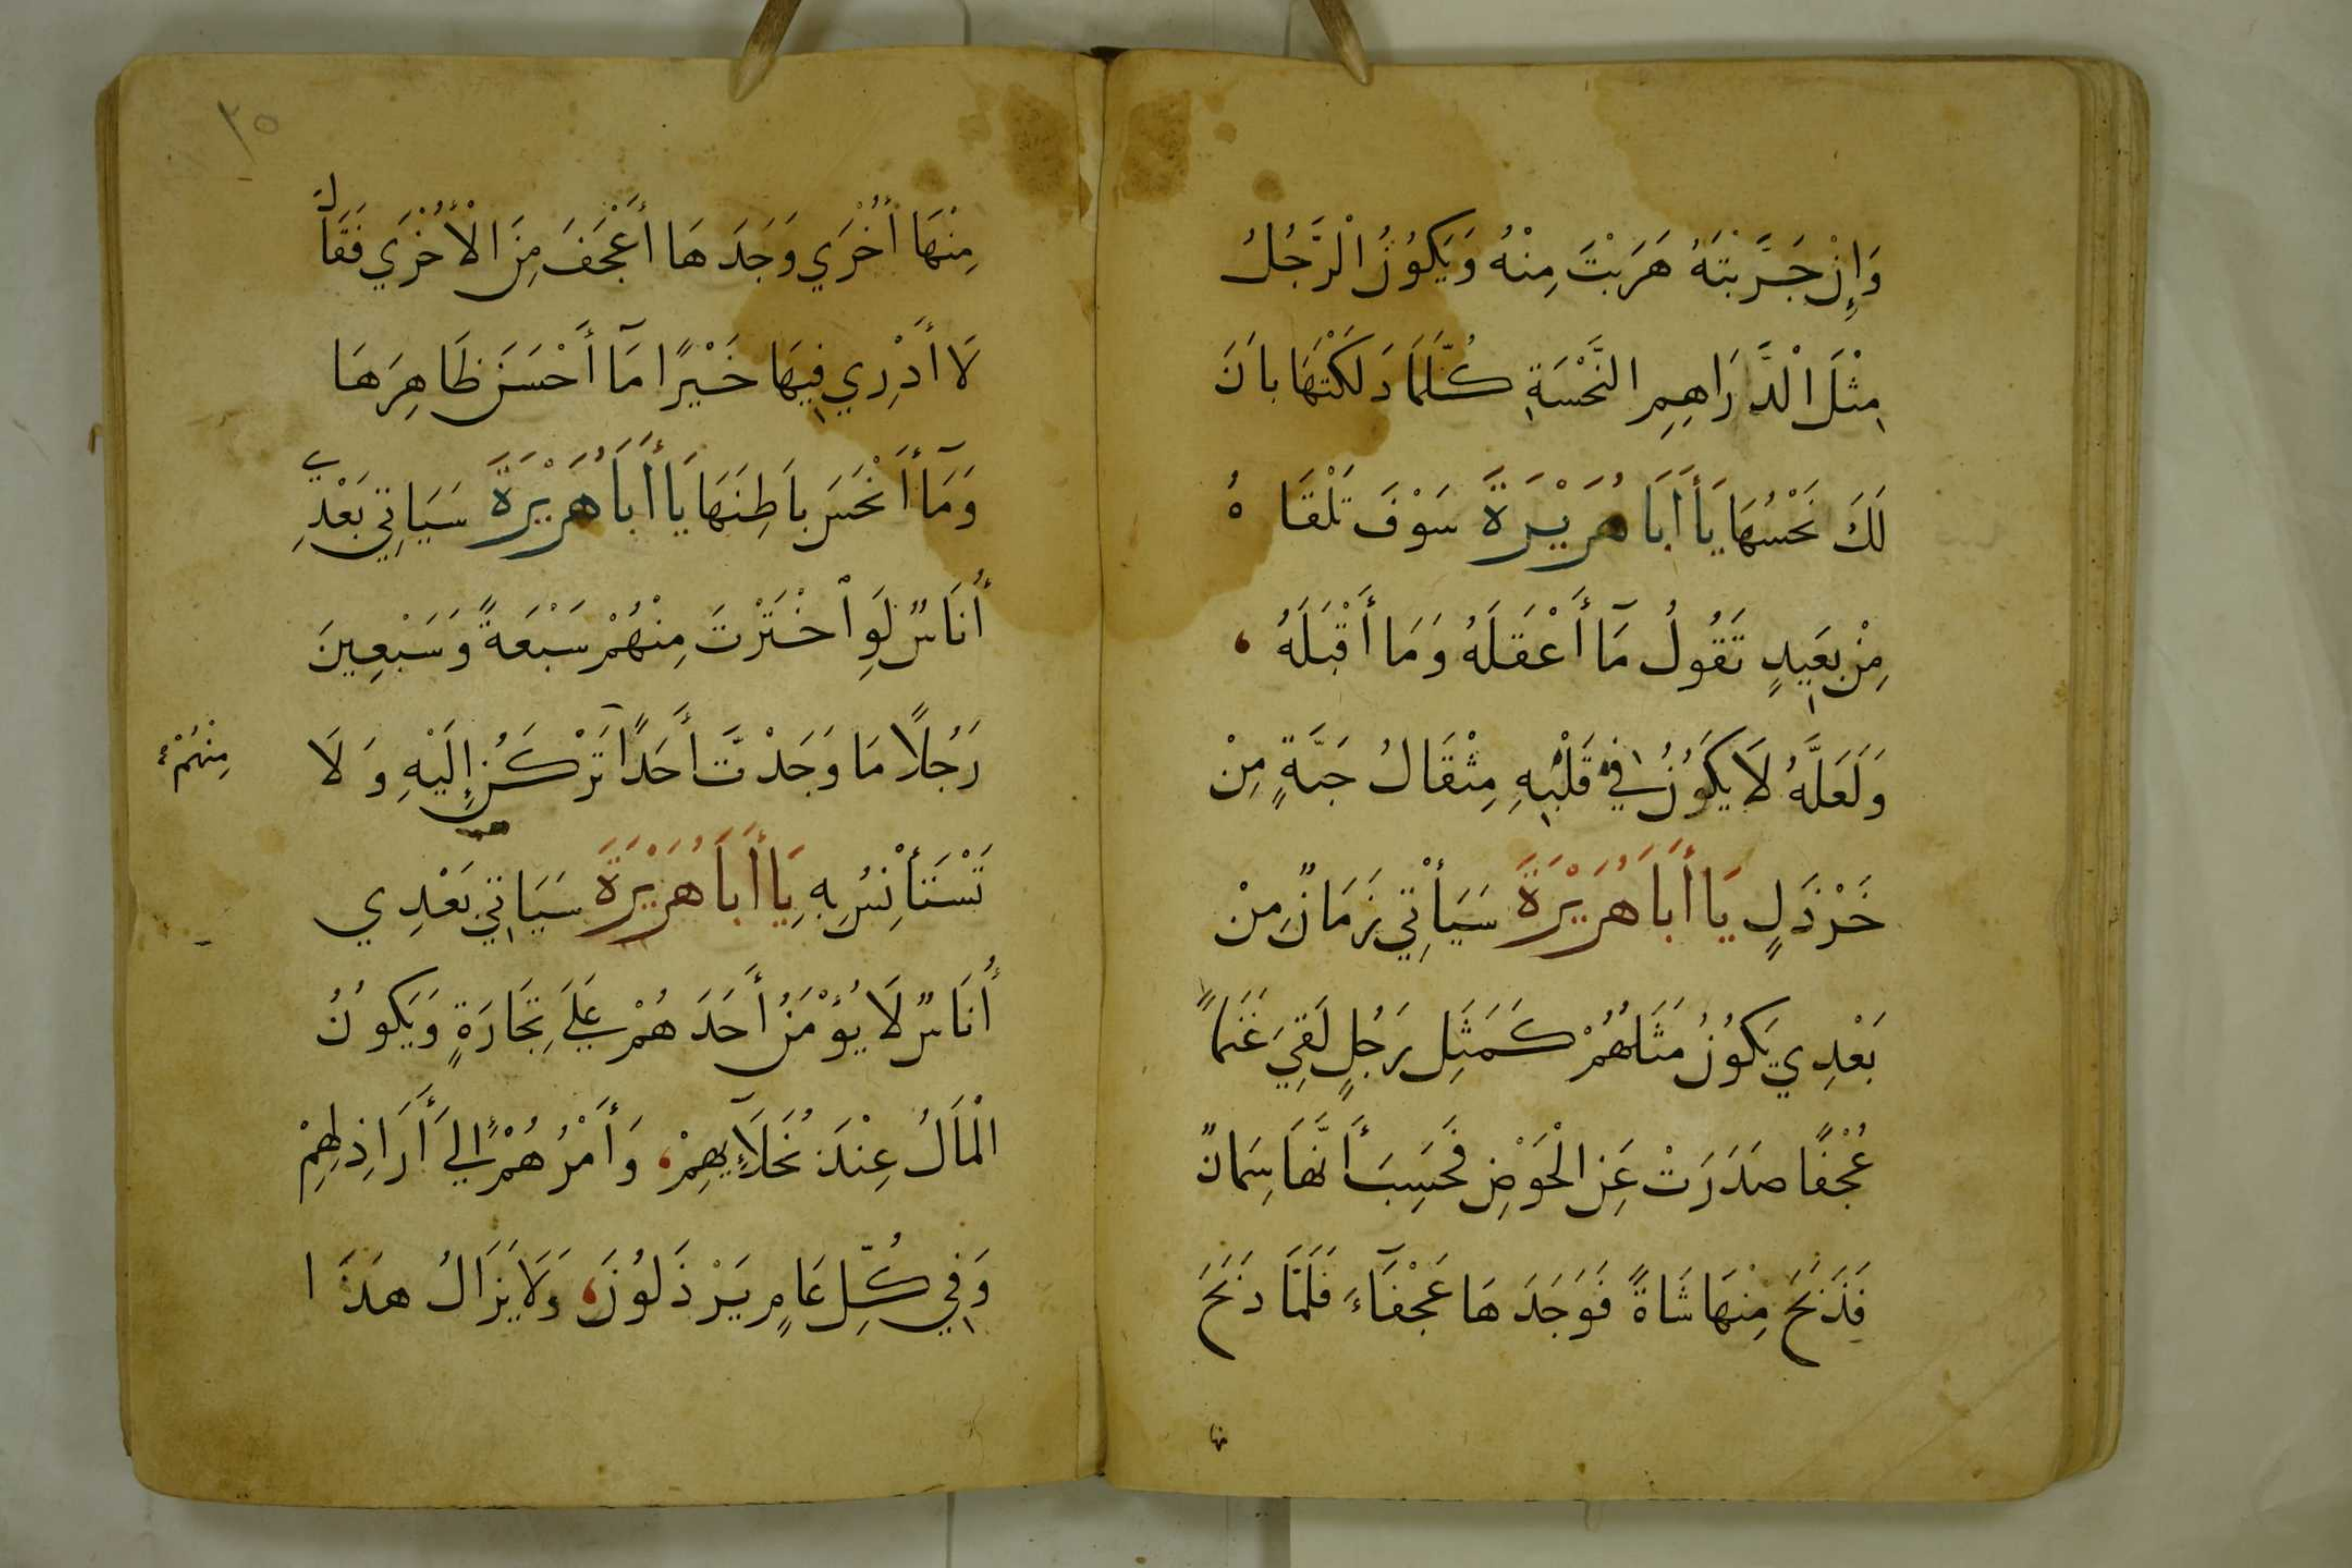 وَإِنْ جَرَّبْتَهُ هَرَبْتَ مِنْهُ وَيَكُونُ الْرَّجُلُ
مِثْلَ الْدَّرَاهِمِ النَّحْسَةِ كُلَّمَا دَلَكْتَهَا بانَ
لَكَ نَحْسُهَا يَا أَبَا هُرَيْرَةَ سَوْفَ تَلْقَاهُ
مِنْ بَعِيدٍ تَقُولُ مَآ أَعْقَلَهُ وَمَا أَقْبَلَهُ
وَلَعَلَّهُ لَا يَكُونُ فِي قَلْبِهِ مِثْقَالُ حَبَّةٍ مِنْ
خَرْدَلٍ يَا أَبَا هُرَيْرَةَ سَيَأْتِي زَمَانٌ مِنْ
بَعْدِي يَكُونُ مَثَلُهُمْ كَمَثَلِ رَجُلٍ لَقِيَ غَنَماً
عُجْفًا صَدَرَتْ عَنِ الْحَوْضِ فَحَسِبَ أَنَّهَا سِمَانٌ
فَذَبَحَ مِنْهَا شَاةً فَوَجَدَهَا عَجْفَآءَ فَلَمَّا ذَبَحَ
٣٥
مِنْهَا أُخْرَي وَجَدَهَا أَعْجَفَ مِنَ الْأُخْرَي فَقَالَ
لَا أَدْرِي فِيهَا خَيْرًا مَآ أَحْسَنَ ظَاهِرَهَا
وَمَآ أَنْحَسَ بَاطِنَهَا يَا أَبَا هُرَيْرَةَ سَيَاتِي بَعْدِي
أُنَاسٌ لَوِ ٱخْتَرْتَ مِنْهُمْ سَبْعَةً وَسَبْعِينَ
رَجُلًا مَا وَجَدْتَّ أَحَدًا تَرْكَنُ إِلَيْهِ وَلَا
مِنْهُمْ
تَسْتَأْنِسُ بِهِ يَا أَبَا هُرَيْرَةَ سَيَاتِي بَعْدِي
أُنَاسٌ لَا يُؤْمَنُ أَحَدَهُمْ عَلَي تِجَارَةٍ وَيَكُونُ
الْمَالُ عِنْدَ بُخَلَآءِيهِمْ وَأَمْرُهُمْ إِلَي أَرَاذِلِهِمْ
وَفِي كُلِّ عَامٍ يَرْذَلُونَ وَلَا يَزَالُ هَذَا